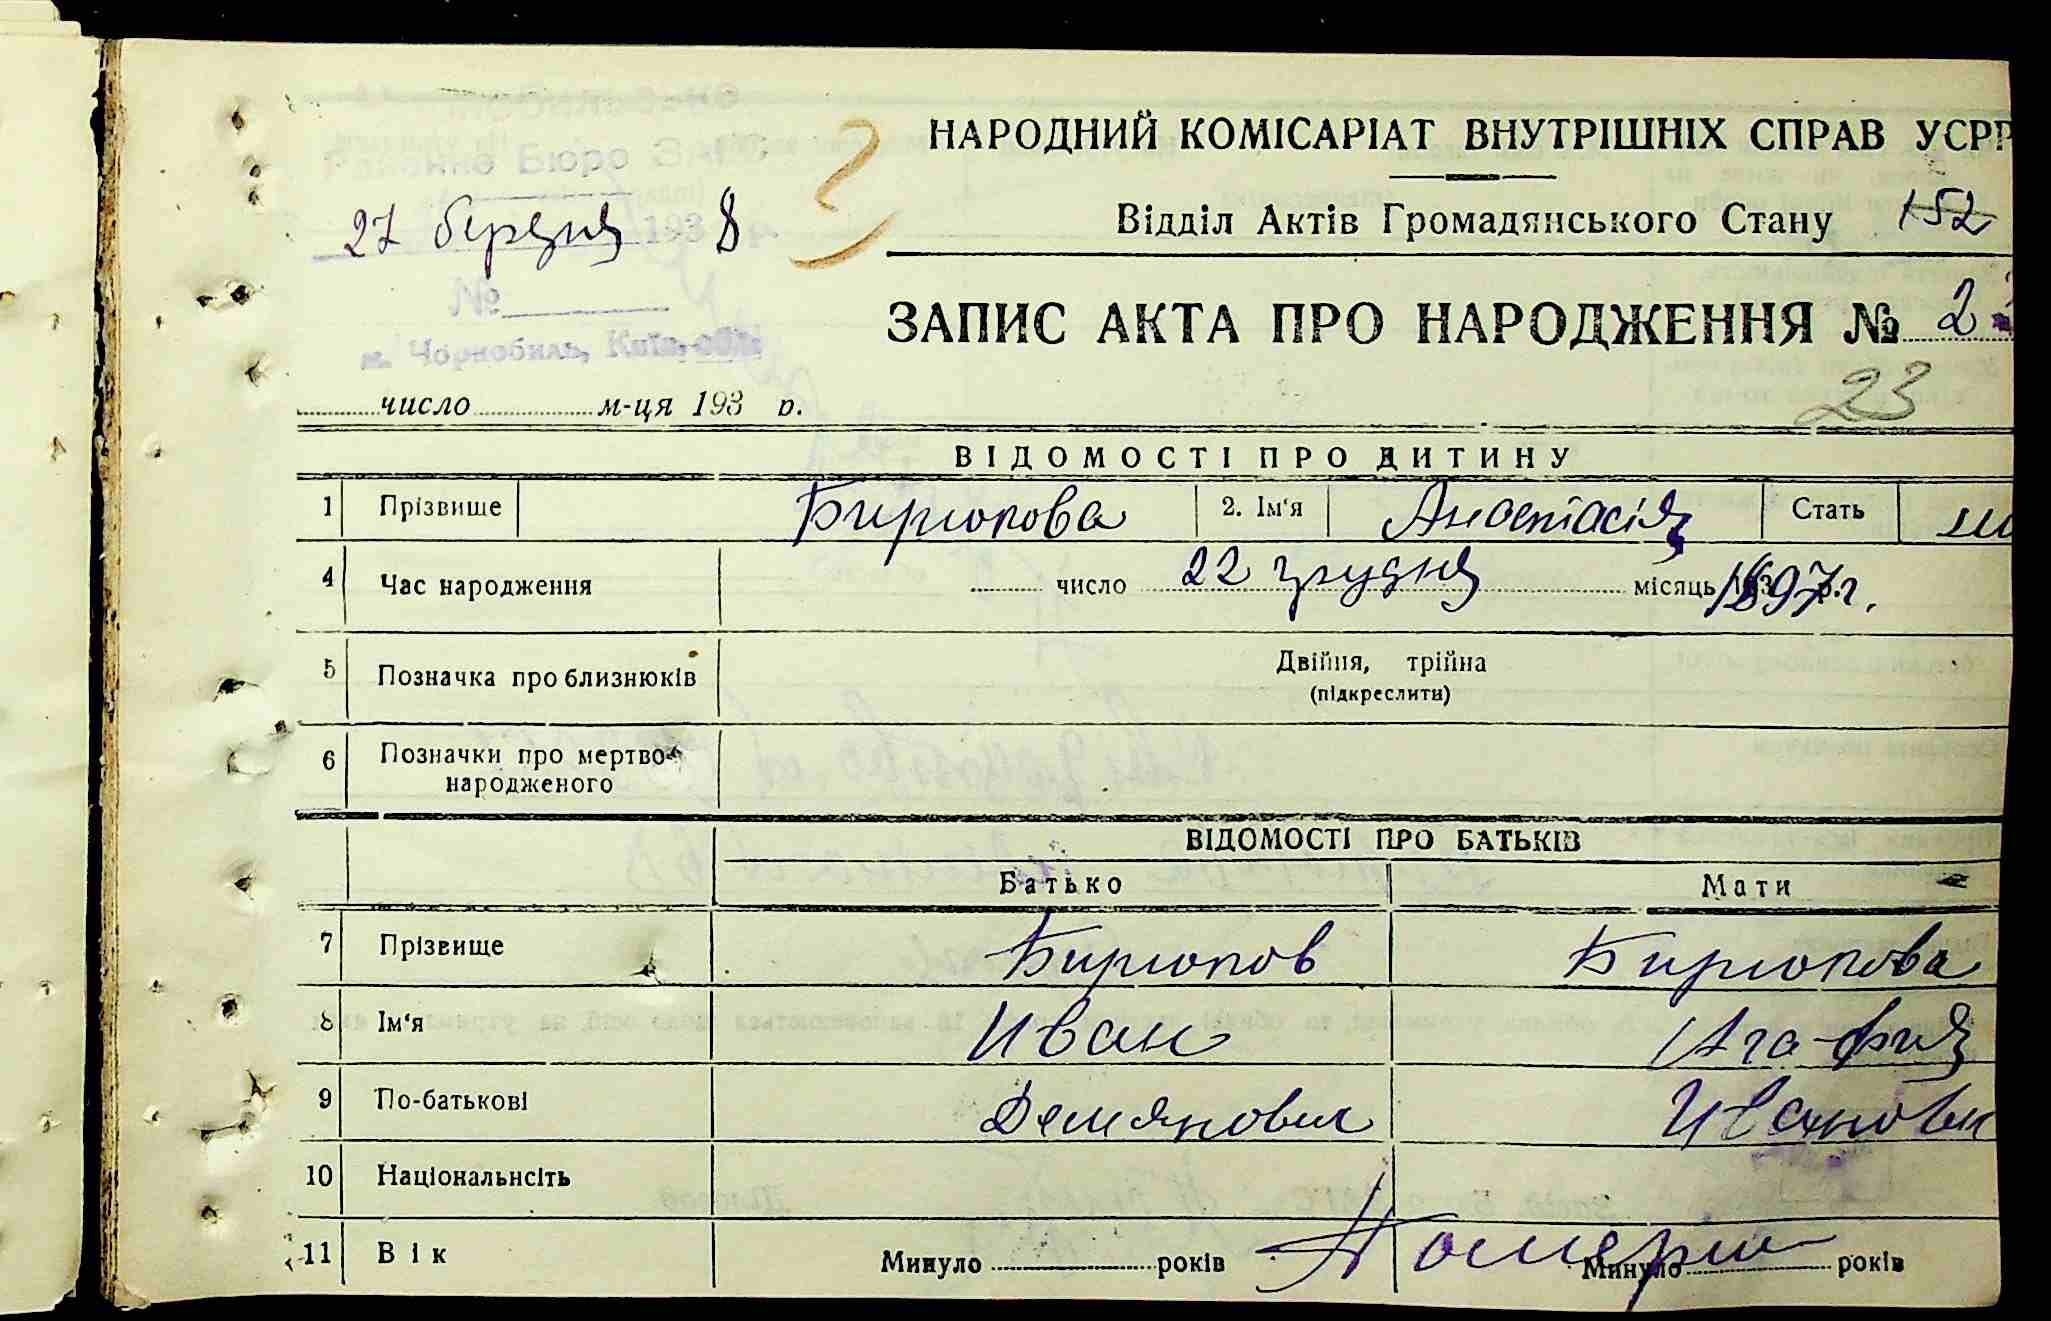 НАРОДНИЙ КОМІСАРІАТ ВНУТРІШНІХ СПРАВ УСРР
Районне Бюро ЗАГС
27 березня 1938
Відділ Актів Громадянського Стану 152
№
ЗАПИС АКТА ПРО НАРОДЖЕННЯ № 23
м. Чорнобиль, Київ. обл.
23
число м-ця 193 р.
ВІДОМОСТІ ПРО ДИТИНУ
1 Прізвище Бирюкова 2. Ім'я Анастасія Стать
4 Час народження число 22 грудня місяць 1897 г.
5 Позначка про близнюків Двійня, трійна
(підкреслити)
6 Позначки про мертво-
народженого
ВІДОМОСТІ ПРО БАТЬКІВ
Батько Мати
7 Прізвище Бирюков Бирюкова
8 Ім'я Иван Агафия
9 По-батькові Демянович Ивановн
10 Національнсіть
11 Вік Минуло років Померли Минуло років